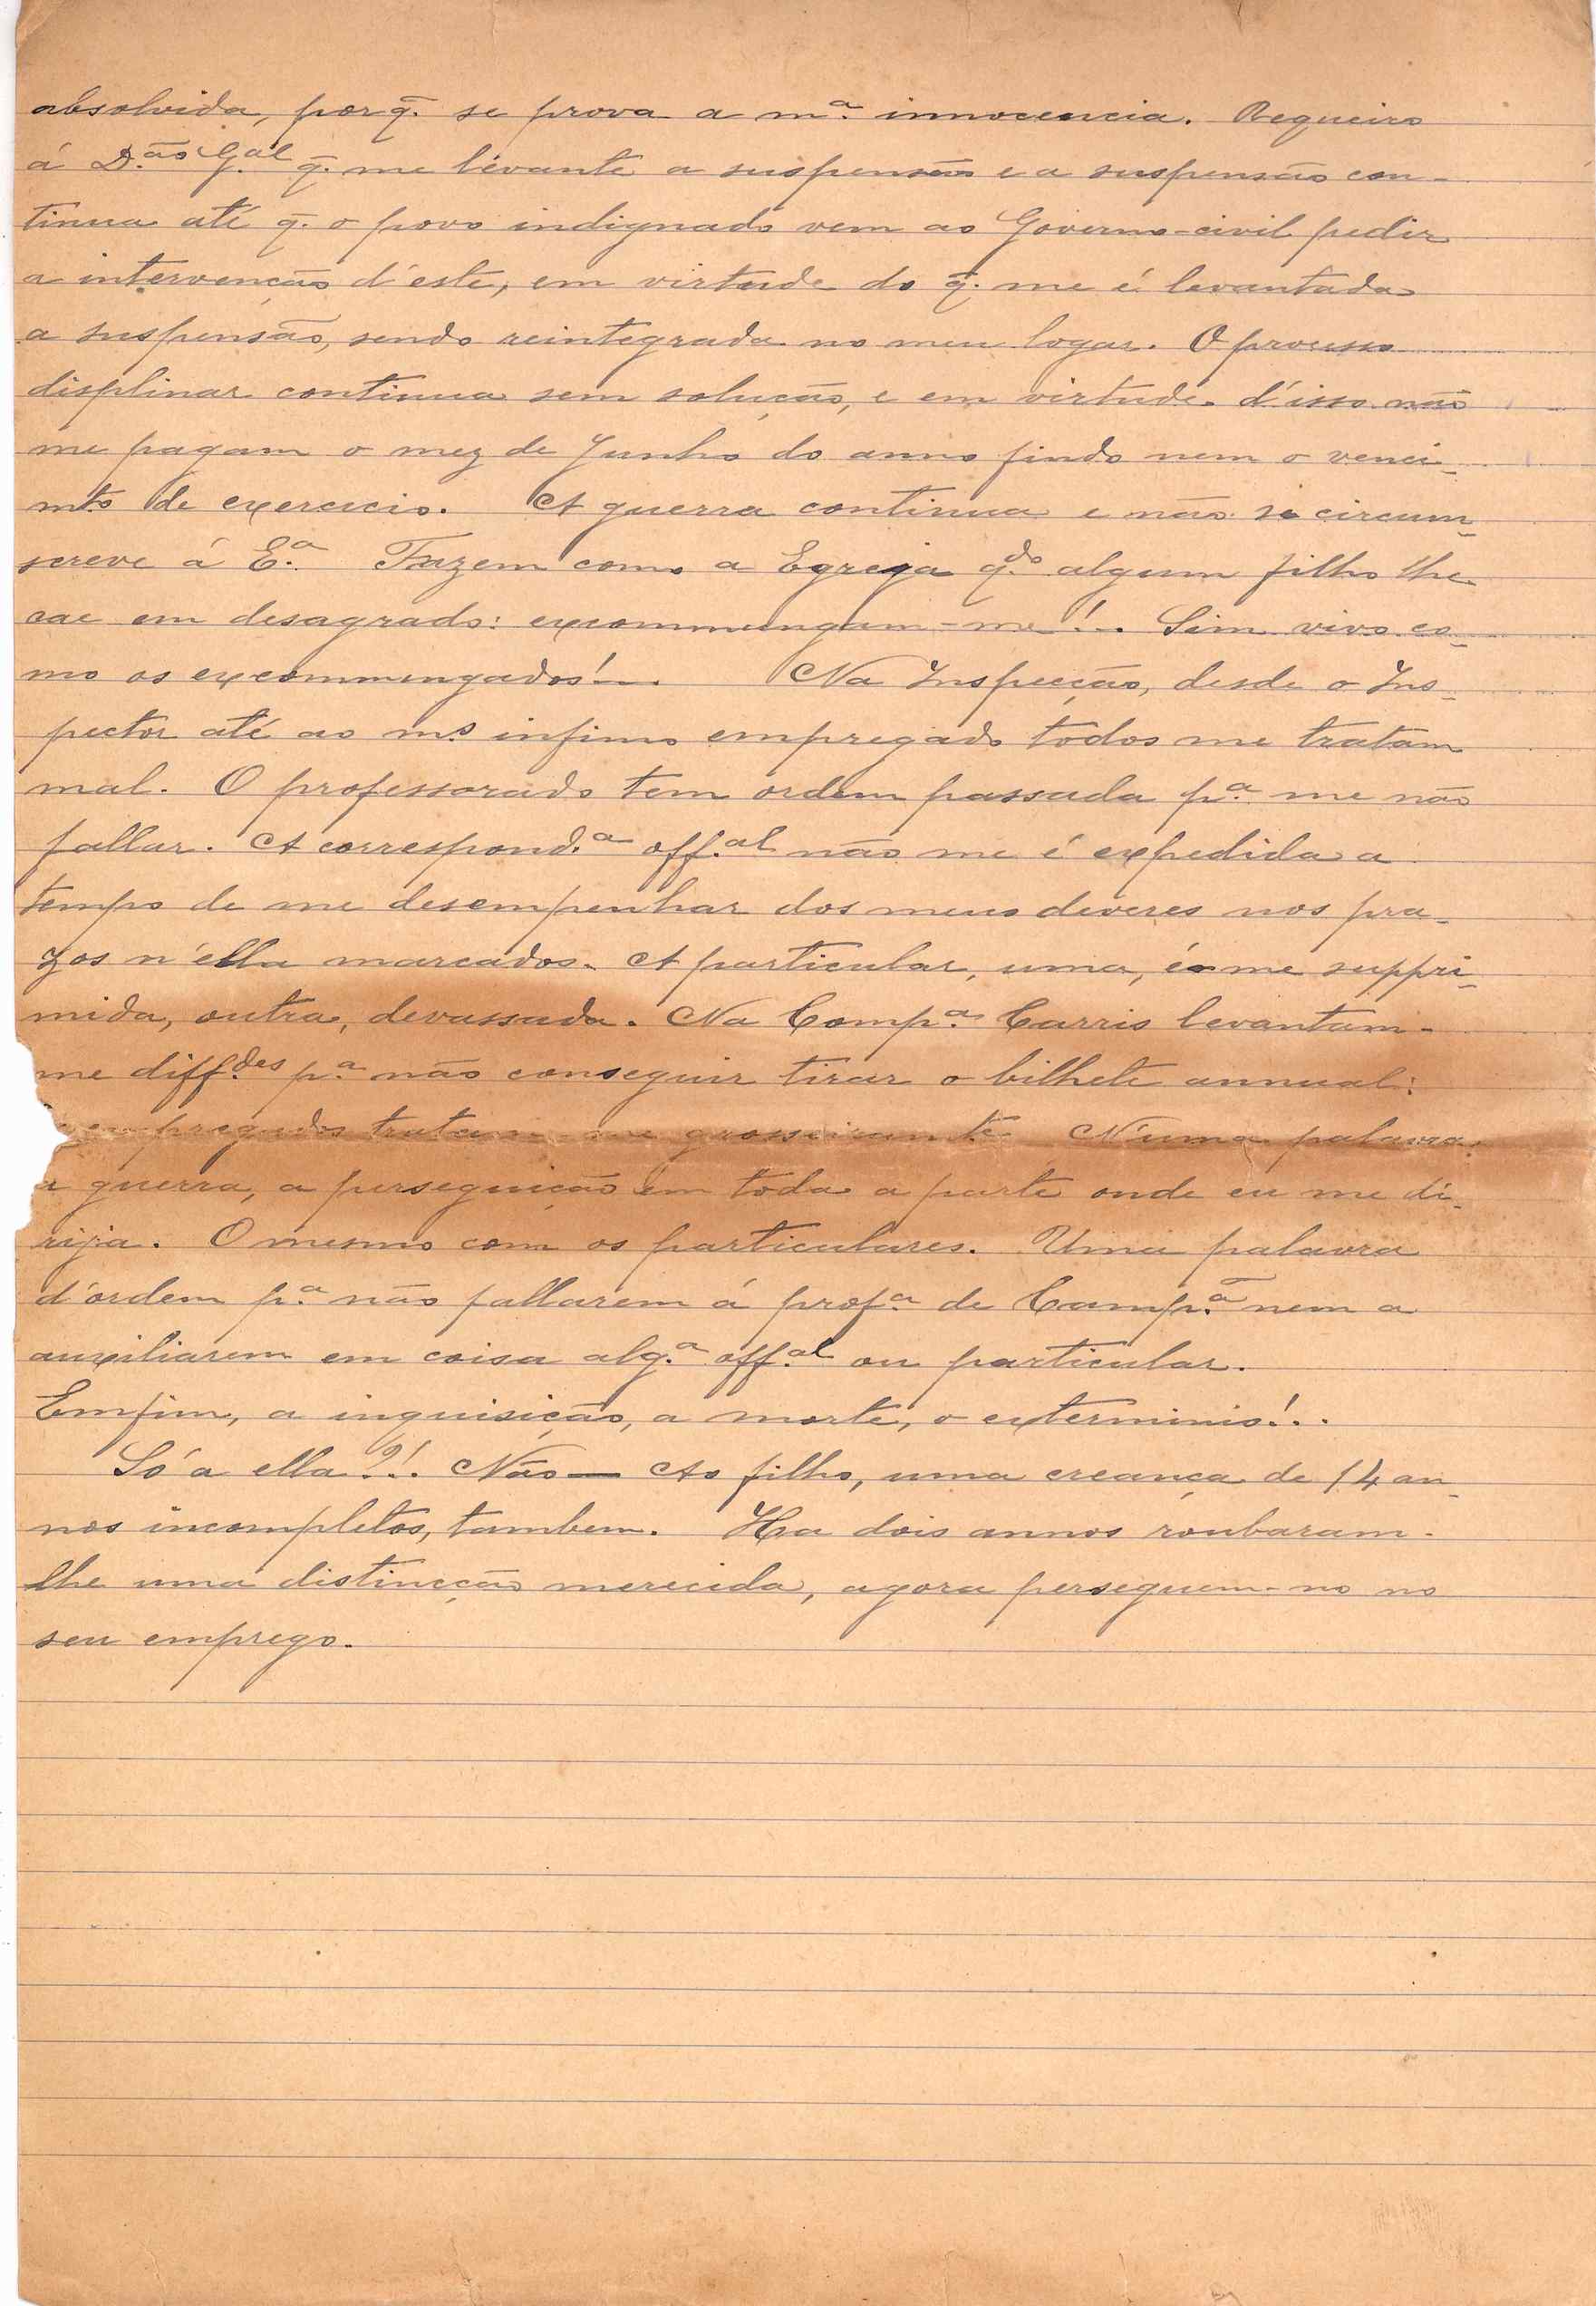 absolvida, porq̃. se prova a m.ª innocencia. Requeiro
á D.ão G.al q̃. me levante a suspensão e a suspensão con-
tinua até q̃. o povo indignado vem ao Governo-civil pedir
a intervenção d'este, em virtude do q̃. me é levantada
a suspensão, sendo reintegrada no meu logar. O processo
displinar continua sem solução, e em virtude d'isso não
me pagam o mez de Junho do anno findo nem o venci-
mto de exercicio. A guerra continua e não se circum-
screve á E.ª Fazem como a Egreja q.do algum filho lhe
cae em desagrado: excommungam-me!.. Sim vivo co-
mo os excommungados!... Na Inspecção, desde o Ins-
pector até ao m.s infimo empregado todos me tratam
mal. O professorado tem ordem passada p.ª me não
fallar. A correspond.ª off.al não me é expedida a
tempo de me desempenhar dos meus deveres nos pra-
zos n'ella marcados. A particular, uma, é-me suppri-
mida, outra, devassada. Na Comp.ª Carris levantam-
me diff.des p.ª não conseguir tirar o bilhete annual:
empregados tratam-me grosseiramte. N'uma palavra:
a guerra, a perseguição em toda a parte onde eu me di-
rija. O mesmo com os particulares. Uma palavra
d'ordem p.ª não fallarem á prof.ª de Camp.ã nem a
auxiliarem em coisa alg.ª off.al ou particular.
Emfim, a inquisição, a morte, o exterminio!..
Só a ella?!. Não — Ao filho, uma creança de 14 an-
nos incompletos, tambem. Ha dois annos roubaram-
lhe uma distincção merecida, agora perseguem-no no
seu emprego.